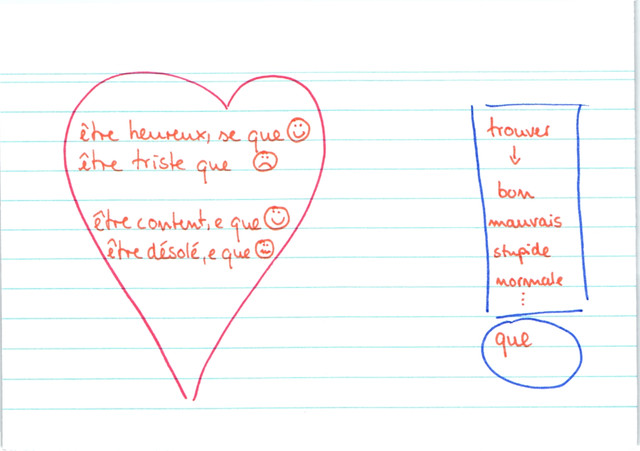 être heureux, se que
être triste que
être content, e que
être désolé, e que
trouver
↓
bon
mauvais
stupide
normale
...
que